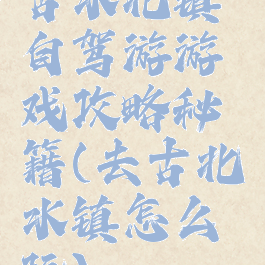 古水北镇
自驾游游
戏攻略秘
籍(去古北
水镇怎么